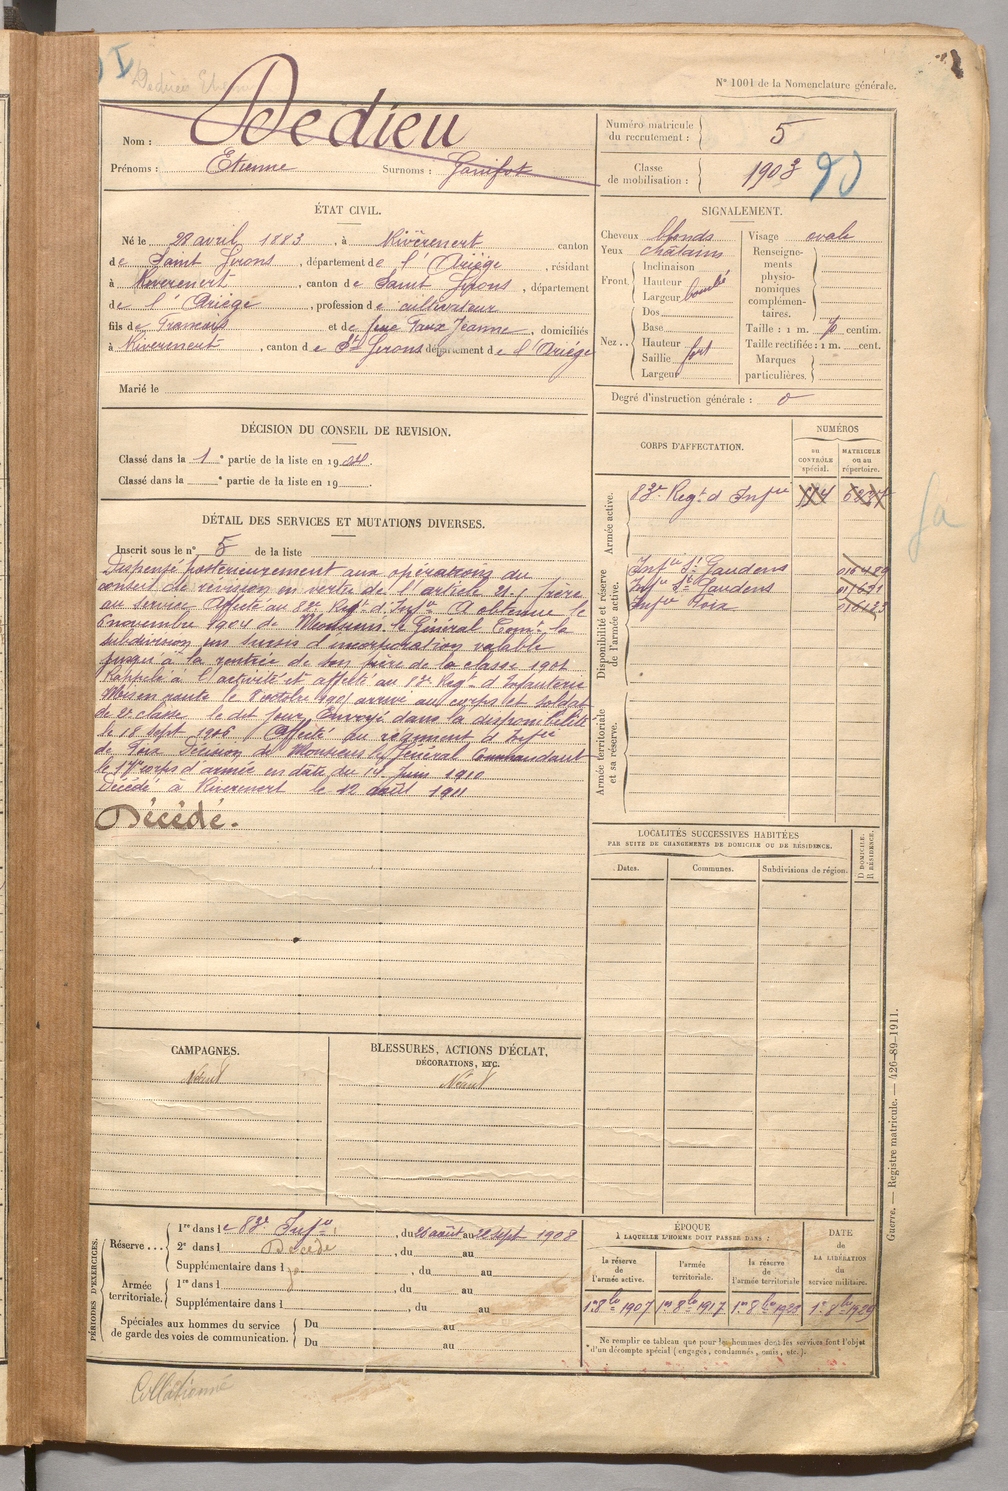 N° 1001 de la Nomenclature générale.
Nom : Dedieu
Prénoms : Etienne Surnoms :
Numéro matricule du recrutement : 5
Classe de mobilisation : 1903
90
ÉTAT CIVIL.
Né le 28 avril 1883, à Rivèrenert canton
de Saint Girons, département de l'Ariége, résidant
à Riverenert, canton de Saint Girons, département
de l'Ariége, profession de cultivateur
fils de Francois et de feue Faux Jeanne, domiciliés
à Riverenert, canton de St Girons département de l'Ariége
Marié le
SIGNALEMENT.
Cheveux blonds
Yeux chatains
Front Inclinaison
Hauteur
Largeur bombé
Nez Dos
Base
Hauteur
Saillie fort
Largeur
Visage ovale
Renseignements physionomiques complémentaires.
Taille : 1 m. 70 centim.
Taille rectifiée : 1 m. cent.
Marques particulières.
Degré d'instruction générale : 0
DÉCISION DU CONSEIL DE REVISION.
Classé dans la 1e partie de la liste en 1904.
Classé dans la e partie de la liste en 19
CORPS D'AFFECTATION.
NUMÉROS
au CONTRÔLE spécial.
MATRICULE ou au répertoire.
Armée active.
83e Regt d'Infrie 114
Disponibilité et réserve de l'armée active.
Infie St Gaudens
Infie St Gaudens
Infie Foix
Armée territoriale et sa réserve.
DÉTAIL DES SERVICES ET MUTATIONS DIVERSES.
Inscrit sous le n° 5 de la liste
Dispensé postérieurement aux opérations du
conseil de révision en vertu de l'article 21. frère
au service. Affecté au 83e Regt d'Infie A obtenu le
8 novembre 1904 de Monsieur le Général Comt la
subdivision un sursis d'incorporation valable
jusqu'à la rentrée de son frère de la classe 1901
Rappelé à l'activité et affecté au 83e Regt d'Infanterie
Mis en route le 8 octobre 1905 arrivé au corps et soldat
de 2e classe le dit jour. Envoyé dans la disponibilité
le 18 sept 1906. Affecté au régiment d'Infie
de Foix Décision de Monsieur le Général Commandant
le 17e corps d'armée en date du 14 Juin 1910
Décédé à Riverenert le 12 août 1911
Décédé.
LOCALITÉS SUCCESSIVES HABITÉES
PAR SUITE DE CHANGEMENTS DE DOMICILE OU DE RÉSIDENCE.
Dates.
Communes.
Subdivisions de région.
D DOMICILE.
R RÉSIDENCE.
CAMPAGNES.
Néant
BLESSURES, ACTIONS D'ÉCLAT,
DÉCORATIONS, ETC.
Néant
PÉRIODES D'EXERCICES.
Réserve... 1re dans le 83e Infie, du 26 août au 22 sept 1908
2e dans l Décédé, du au
Supplémentaire dans l, du au
Armée territoriale. 1re dans l, du au
Supplémentaire dans l, du au
Spéciales aux hommes du service de garde des voies de communication. Du au
Du au
ÉPOQUE
À LAQUELLE L'HOMME DOIT PASSER DANS :
la réserve de l'armée active.
l'armée territoriale.
la réserve de l'armée territoriale
DATE de LA LIBÉRATION du service militaire.
1er 8bre 1907
1er 8bre 1917
1er 8bre 1923
1er 8bre 1929
Ne remplir ce tableau que pour les hommes dont les services font l'objet
d'un décompte spécial (engagés, condamnés, omis, etc.).
Guerre. — Registre matricule. — 426-89-1911.
Collationné